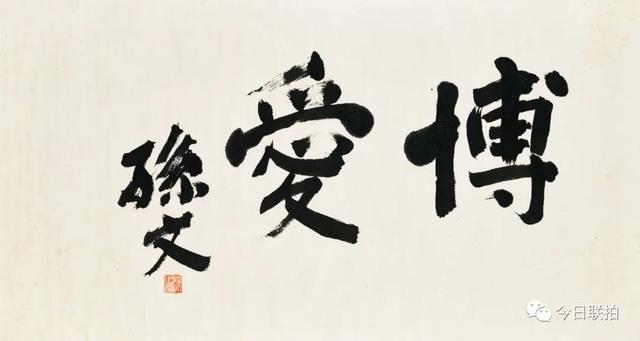 博愛
孫文
今日联拍